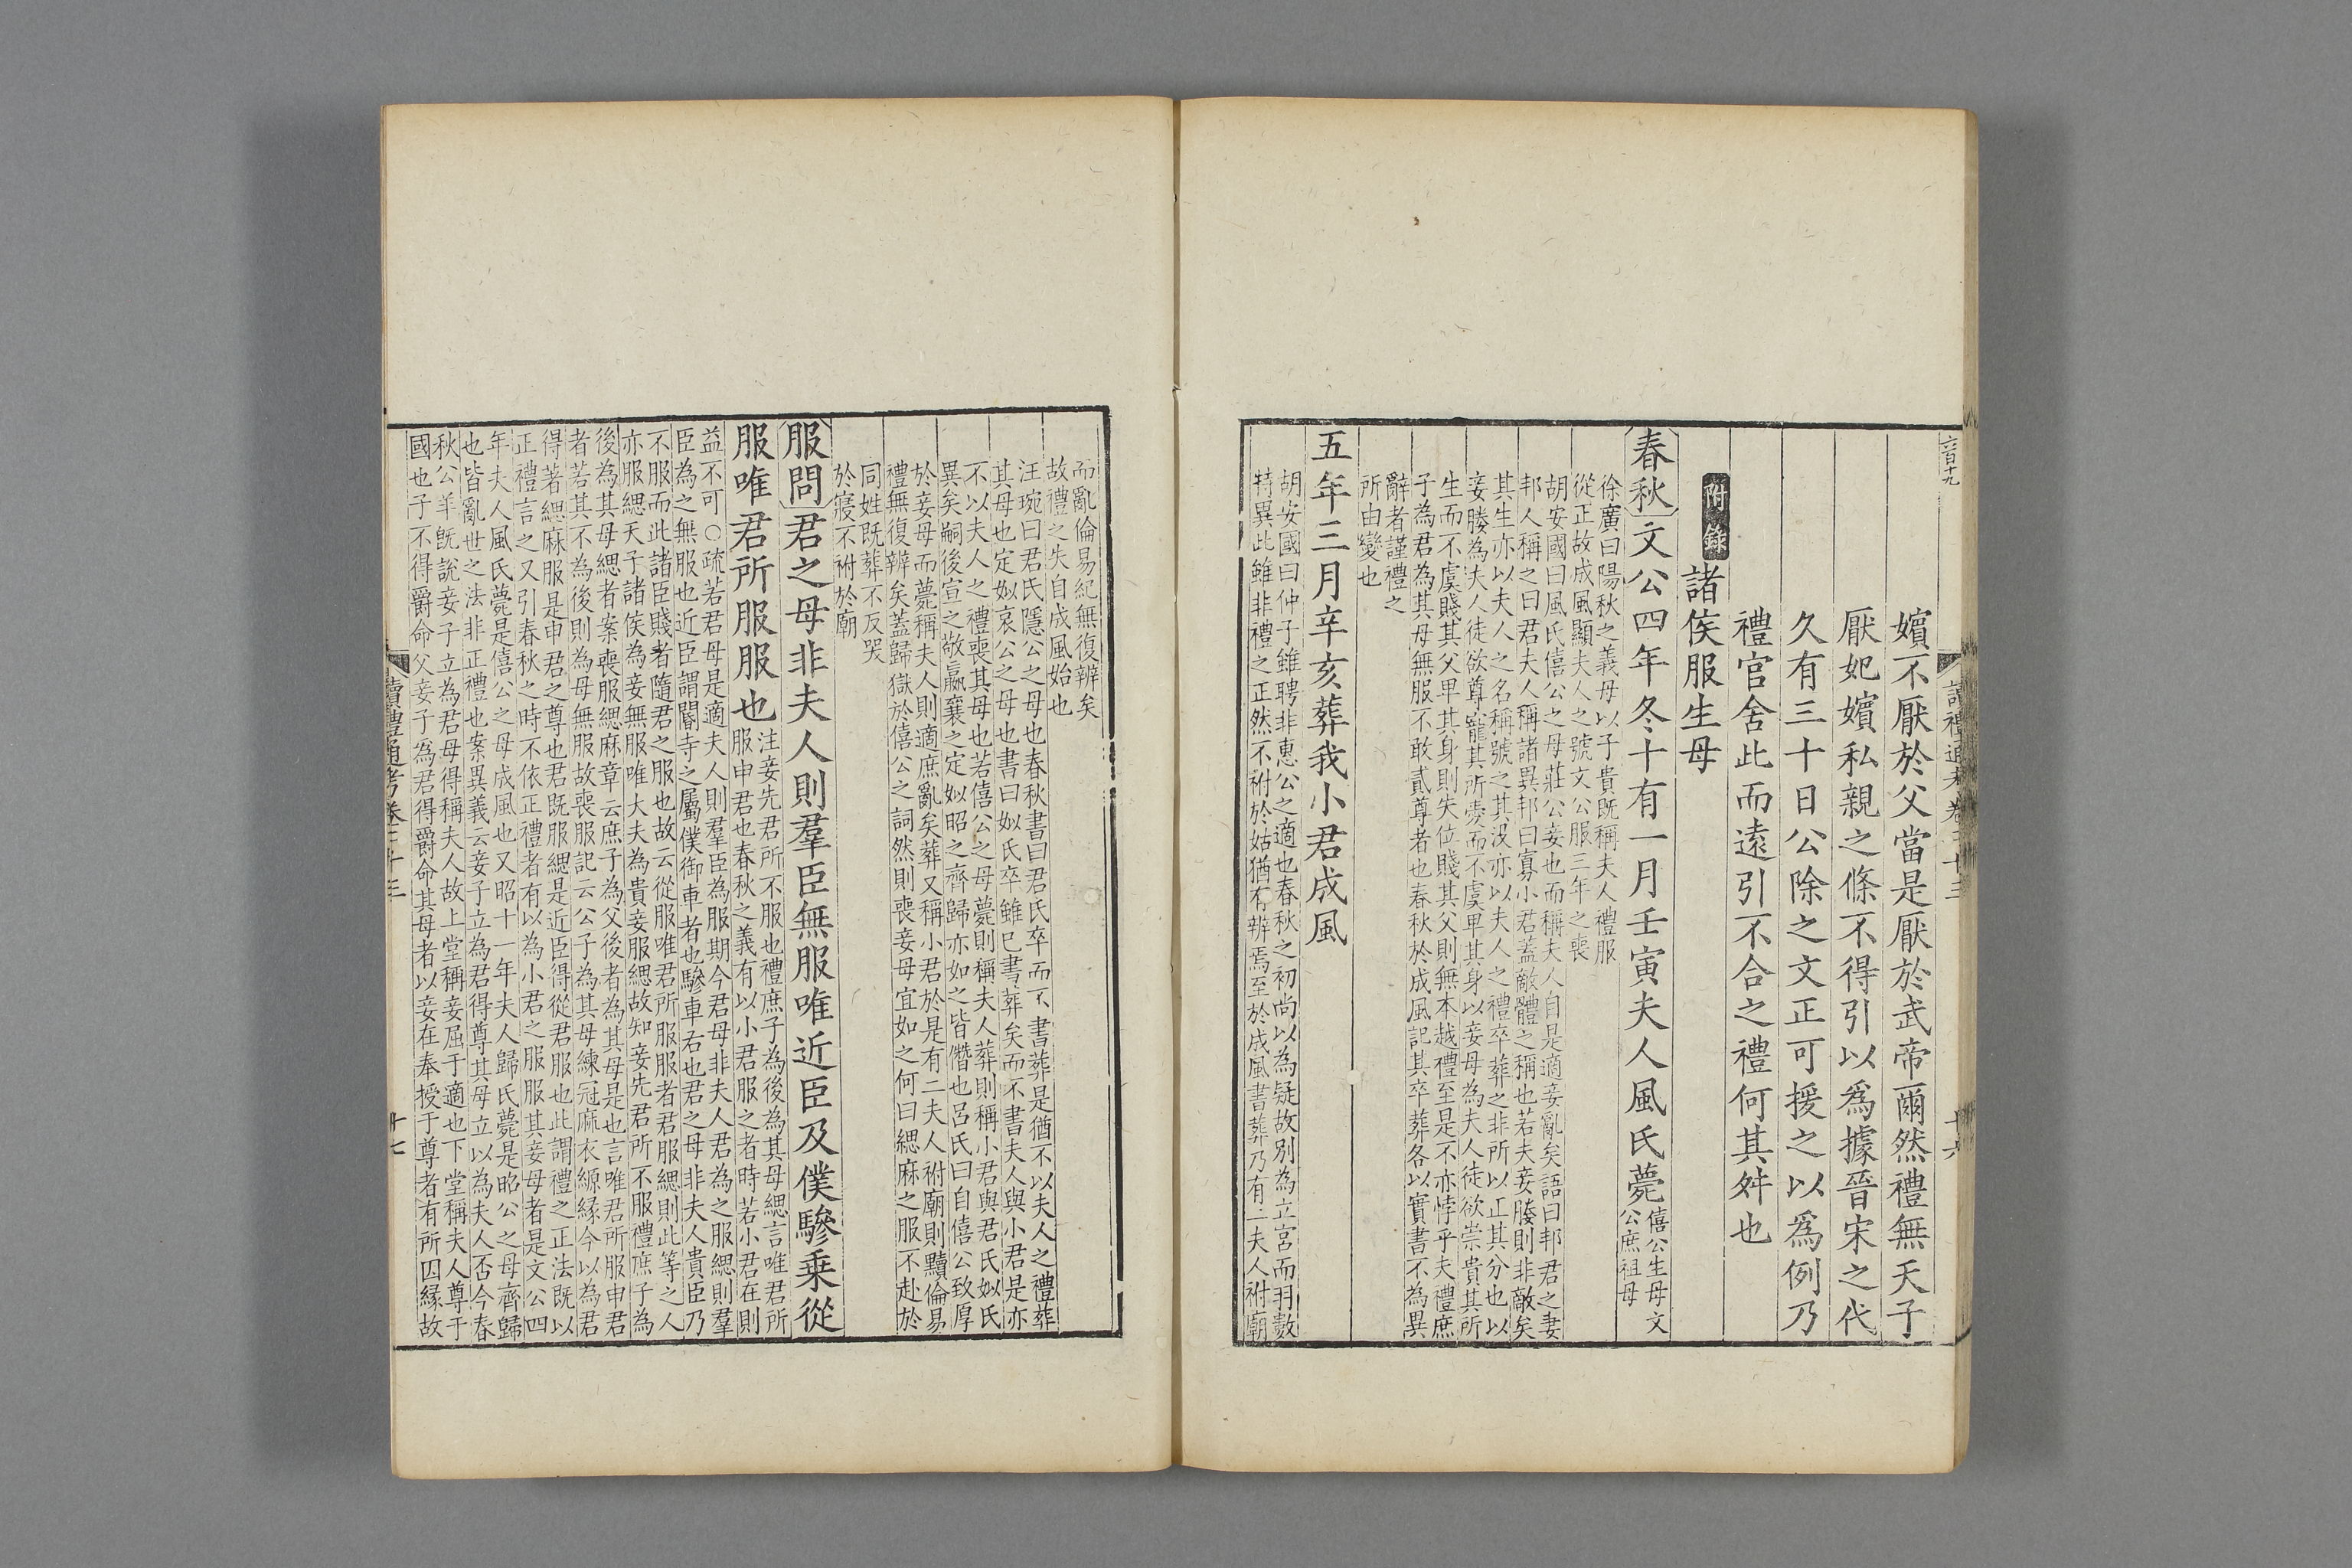 六百十九
讀禮通考卷二十三
十六
嬪不厭於父當是厭於武帝爾然禮無天子
厭妃嬪私親之條不得引以爲據晉宋之代
久有三十日公除之文正可援之以爲例乃
禮官舍此而遠引不合之禮何其舛也
附錄諸侯服生母
春秋文公四年冬十有一月壬寅夫人風氏薨
僖公生母文
公庶祖母
徐廣曰陽秋之義母以子貴既稱夫人禮服
從正故成風顯夫人之號文公服三年之喪
胡安國曰風氏僖公之母莊公妾也而稱夫人自是適妾亂矣語曰邦君之妻
邦人稱之曰君夫人稱諸異邦曰寡小君蓋敵體之稱也若夫妾媵則非敵矣
其生亦以夫人之名稱號之其沒亦以夫人之禮卒葬之非所以正其分也以
妾媵為夫人徒欲尊寵其所愛而不虞卑其身以妾母為夫人徒欲崇貴其所
生而不虞賤其父卑其身則失位賤其父則無本越禮至是不亦悖乎夫禮庶
子為君為其母無服不敢貳尊者也春秋於成風記其卒葬各以實書不為異
辭者謹禮之
所由變也
五年三月辛亥葬我小君成風
胡安國曰仲子雖聘非惠公之適也春秋之初尚以為疑故別為立宮而羽數
特異此雖非禮之正然不祔於姑猶有辨焉至於成風書葬乃有二夫人祔廟
而亂倫易紀無復辨矣
故禮之失自成風始也
汪琬曰君氏隱公之母也春秋書曰君氏卒而不書葬是猶不以夫人之禮葬
其母也定姒哀公之母也書曰姒氏卒雖已書葬矣而不書夫人與小君是亦
不以夫人之禮喪其母也若僖公之母薨則稱夫人葬則稱小君與君氏姒氏
異矣嗣後宣之敬嬴襄之定姒昭之齊歸亦如之皆僭也呂氏曰自僖公致厚
於妾母而薨稱夫人則適庶亂矣葬又稱小君於是有二夫人祔廟則黷倫易
禮無復辨矣蓋歸獄於僖公之詞然則喪妾母宜如之何曰緦麻之服不赴於
同姓既葬不反哭
於寢不祔於廟
服問君之母非夫人則羣臣無服唯近臣及僕驂乗從
服唯君所服服也
注妾先君所不服也禮庶子為後為其母緦言唯君所
服申君也春秋之義有以小君服之者時若小君在則
益不可〇疏若君母是適夫人則羣臣為服期今君母非夫人君為之服緦則羣
臣為之無服也近臣謂閽寺之屬僕御車者也驂車右也君之母非夫人貴臣乃
不服而此諸臣賤者隨君之服也故云從服唯君所服服者君服緦則此等之人
亦服緦天子諸侯為妾無服唯大夫為貴妾服緦故知妾先君所不服禮庶子為
後為其母緦者案喪服緦麻章云庶子為父後者為其母是也言唯君所服申君
者若其不為後則為母無服故喪服記云公子為其母練冠麻衣縓緣今以為君
得著緦麻服是申君之尊也君既服緦是近臣得從君服也此謂禮之正法既以
正禮言之又引春秋之時不依正禮者有以為小君之服服其妾母者是文公四
年夫人風氏薨是僖公之母成風也又昭十一年夫人歸氏薨是昭公之母齊歸
也皆亂世之法非正禮也案異義云妾子立為君得尊其母立以為夫人否今春
秋公羊旣說妾子立為君母得稱夫人故上堂稱妾屈于適也下堂稱夫人尊于
國也子不得爵命父妾子為君得爵命其母者以妾在奉授于尊者有所因緣故
讀禮通考卷二十三
十七